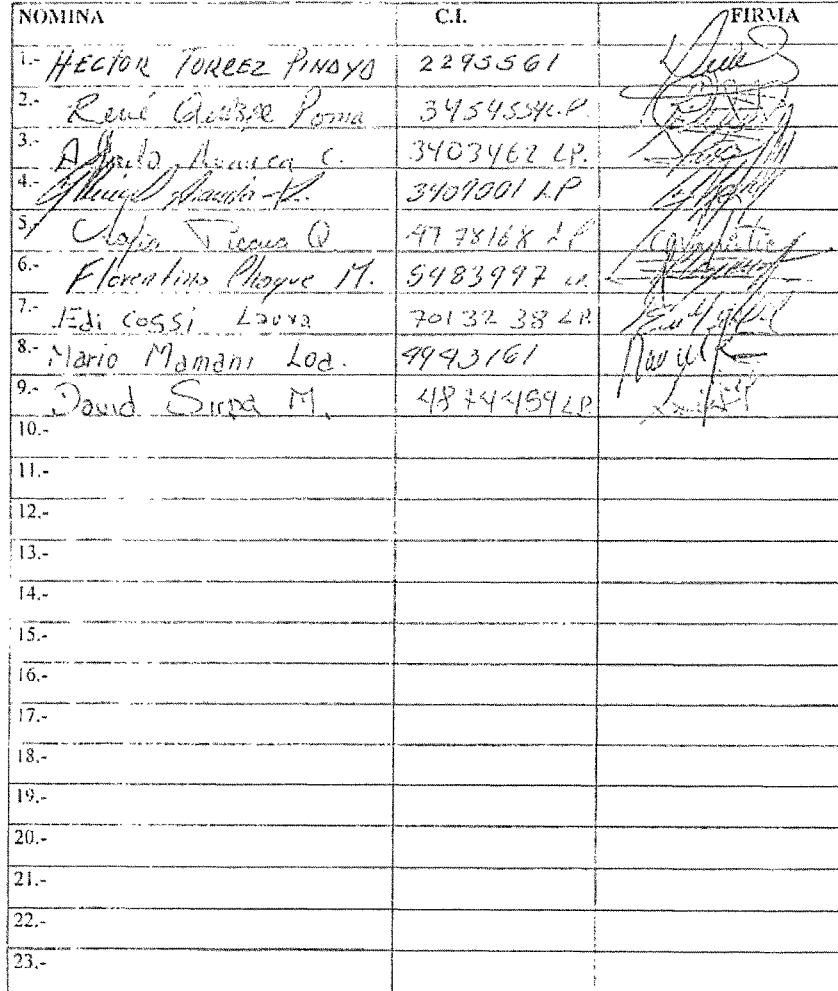 NOMINA C.I. FIRMA
1.- HECTOR TORREZ PINAYO 2295561
2.- René Quispe Poma 3454554L.P
3.- C. 3403462 LP.
4.- 3409001 LP
5.- Q 4778168 LP
6.- Florentino Choque M. 5983997 LP.
7.- Edi Cossi Laura 7013238 LP.
8.- Mario Mamani Loa. 4943161
9.- David Sirpa M. 4874459 LP.
10.-
11.-
12.-
13.-
14.-
15.-
16.-
17.-
18.-
19.-
20.-
21.-
22.-
23.-